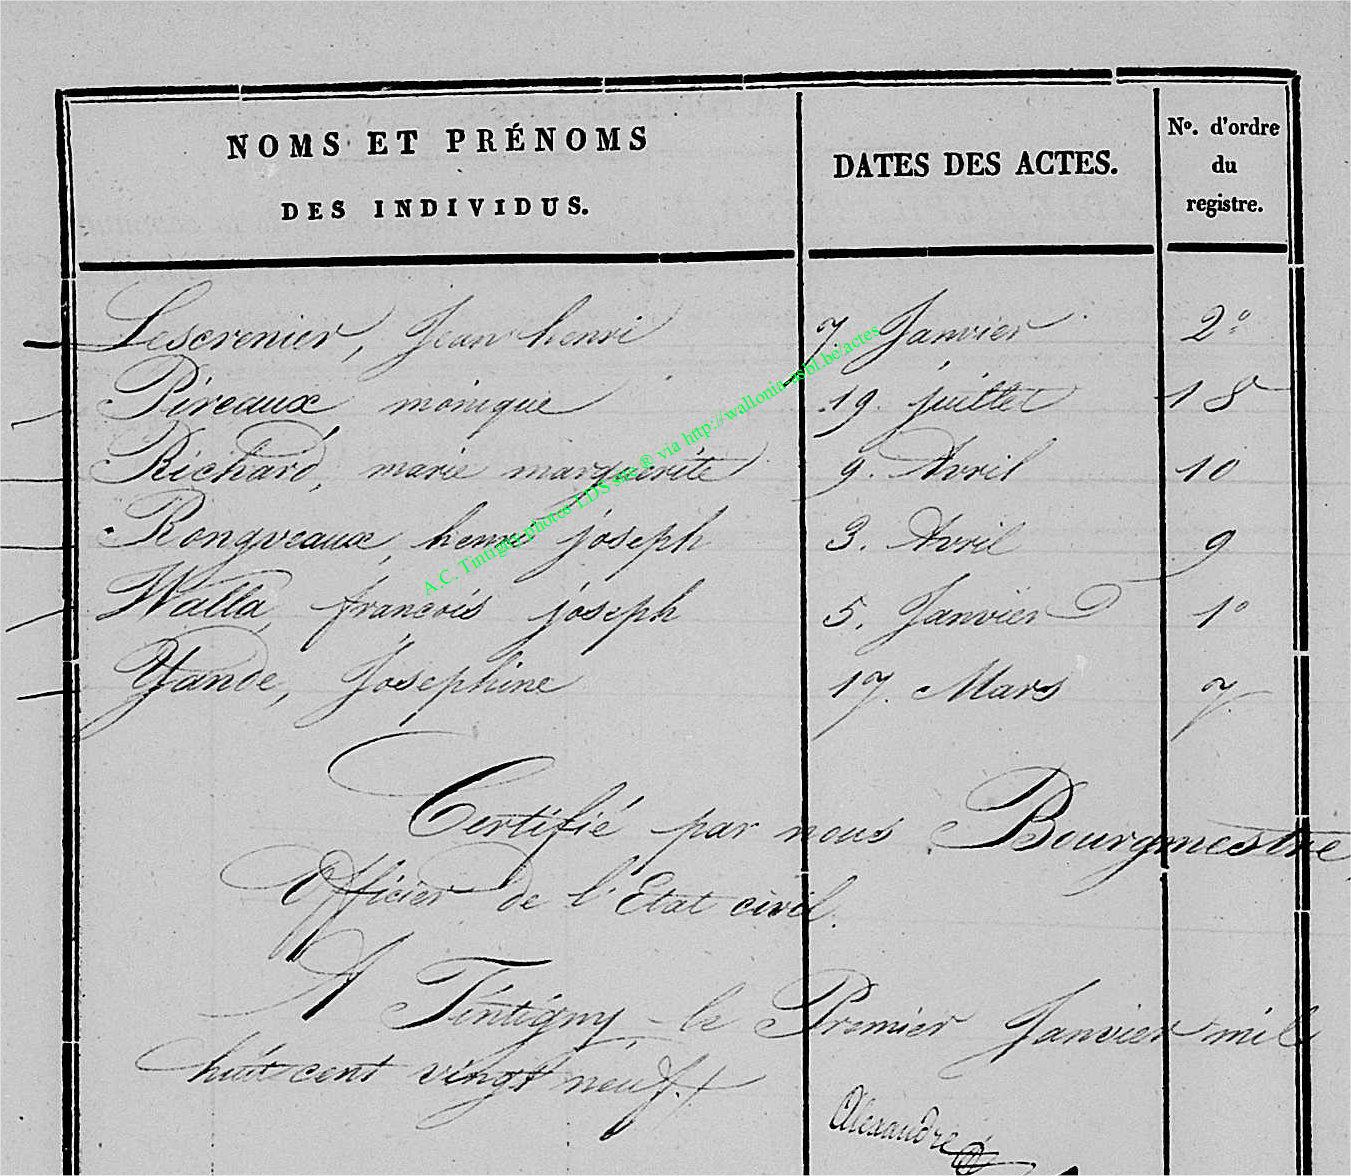 NOMS ET PRÉNOMS
DES INDIVIDUS.
DATES DES ACTES.
No. d'ordre
du
registre.
Lescrenier, Jean henri 7. Janvier 2°
Pireaux monique 19. juillet 18
Richard, marie marguerite 9. Avril 10
Rongveaux, henri joseph 3. Avril 9
Walla, francois joseph 5. Janvier 1°
Yande, Josephine 17. Mars 7.
Certifié par nous Bourgmestre,
Officier de l'Etat civil.
A Tintigny le Premier Janvier mil
huit cent vingt neuf.
Alexandre
A.C. Tintigny photos LDS site® via http://wallonia-asbl.be/actes